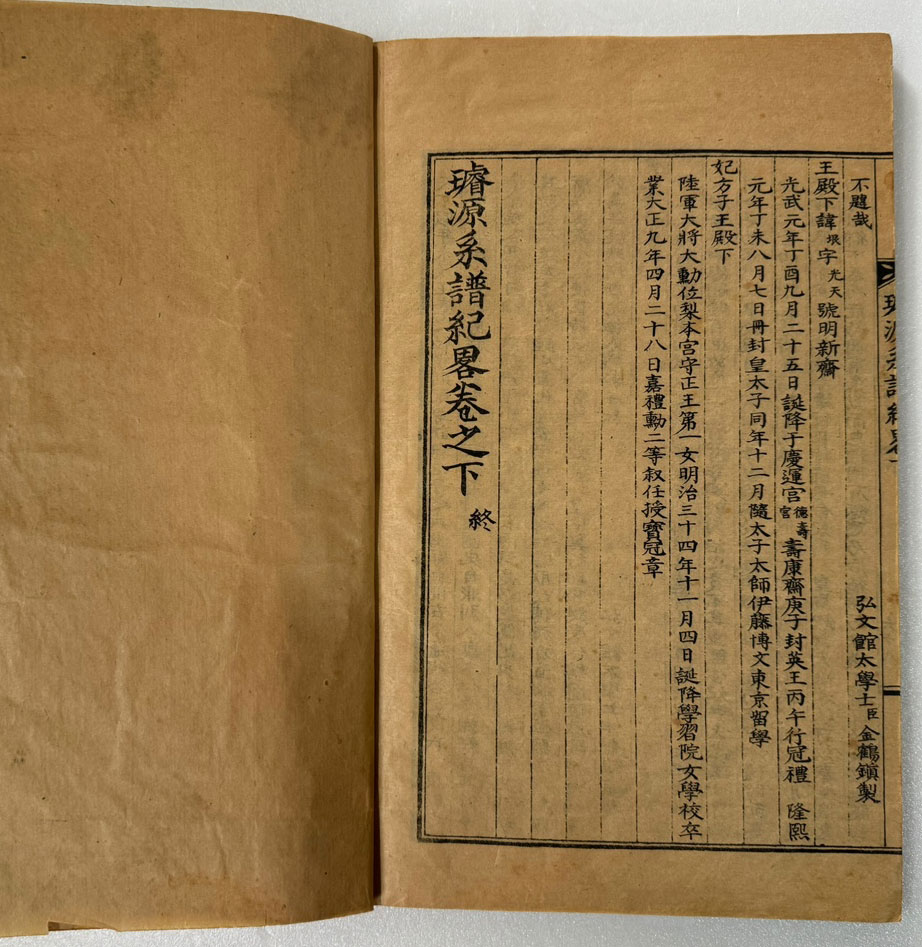 不韙哉 弘文館太學士臣金鶴鎭製
王殿下諱垠字光天號明新齋
光武元年丁酉九月二十五日誕降于慶運宮德壽宮壽康齋庚子封英王丙午行冠禮 隆熙
元年丁未八月七日冊封皇太子同年十二月隨太子太師伊藤博文東京留學
妃方子王殿下
陸軍大將大勳位梨本宮守正王第一女明治三十四年十一月四日誕降學習院女學校卒
業大正九年四月二十八日嘉禮勳二等叙任授寶冠章
璿源系譜紀畧卷之下 終
璿源系譜紀畧